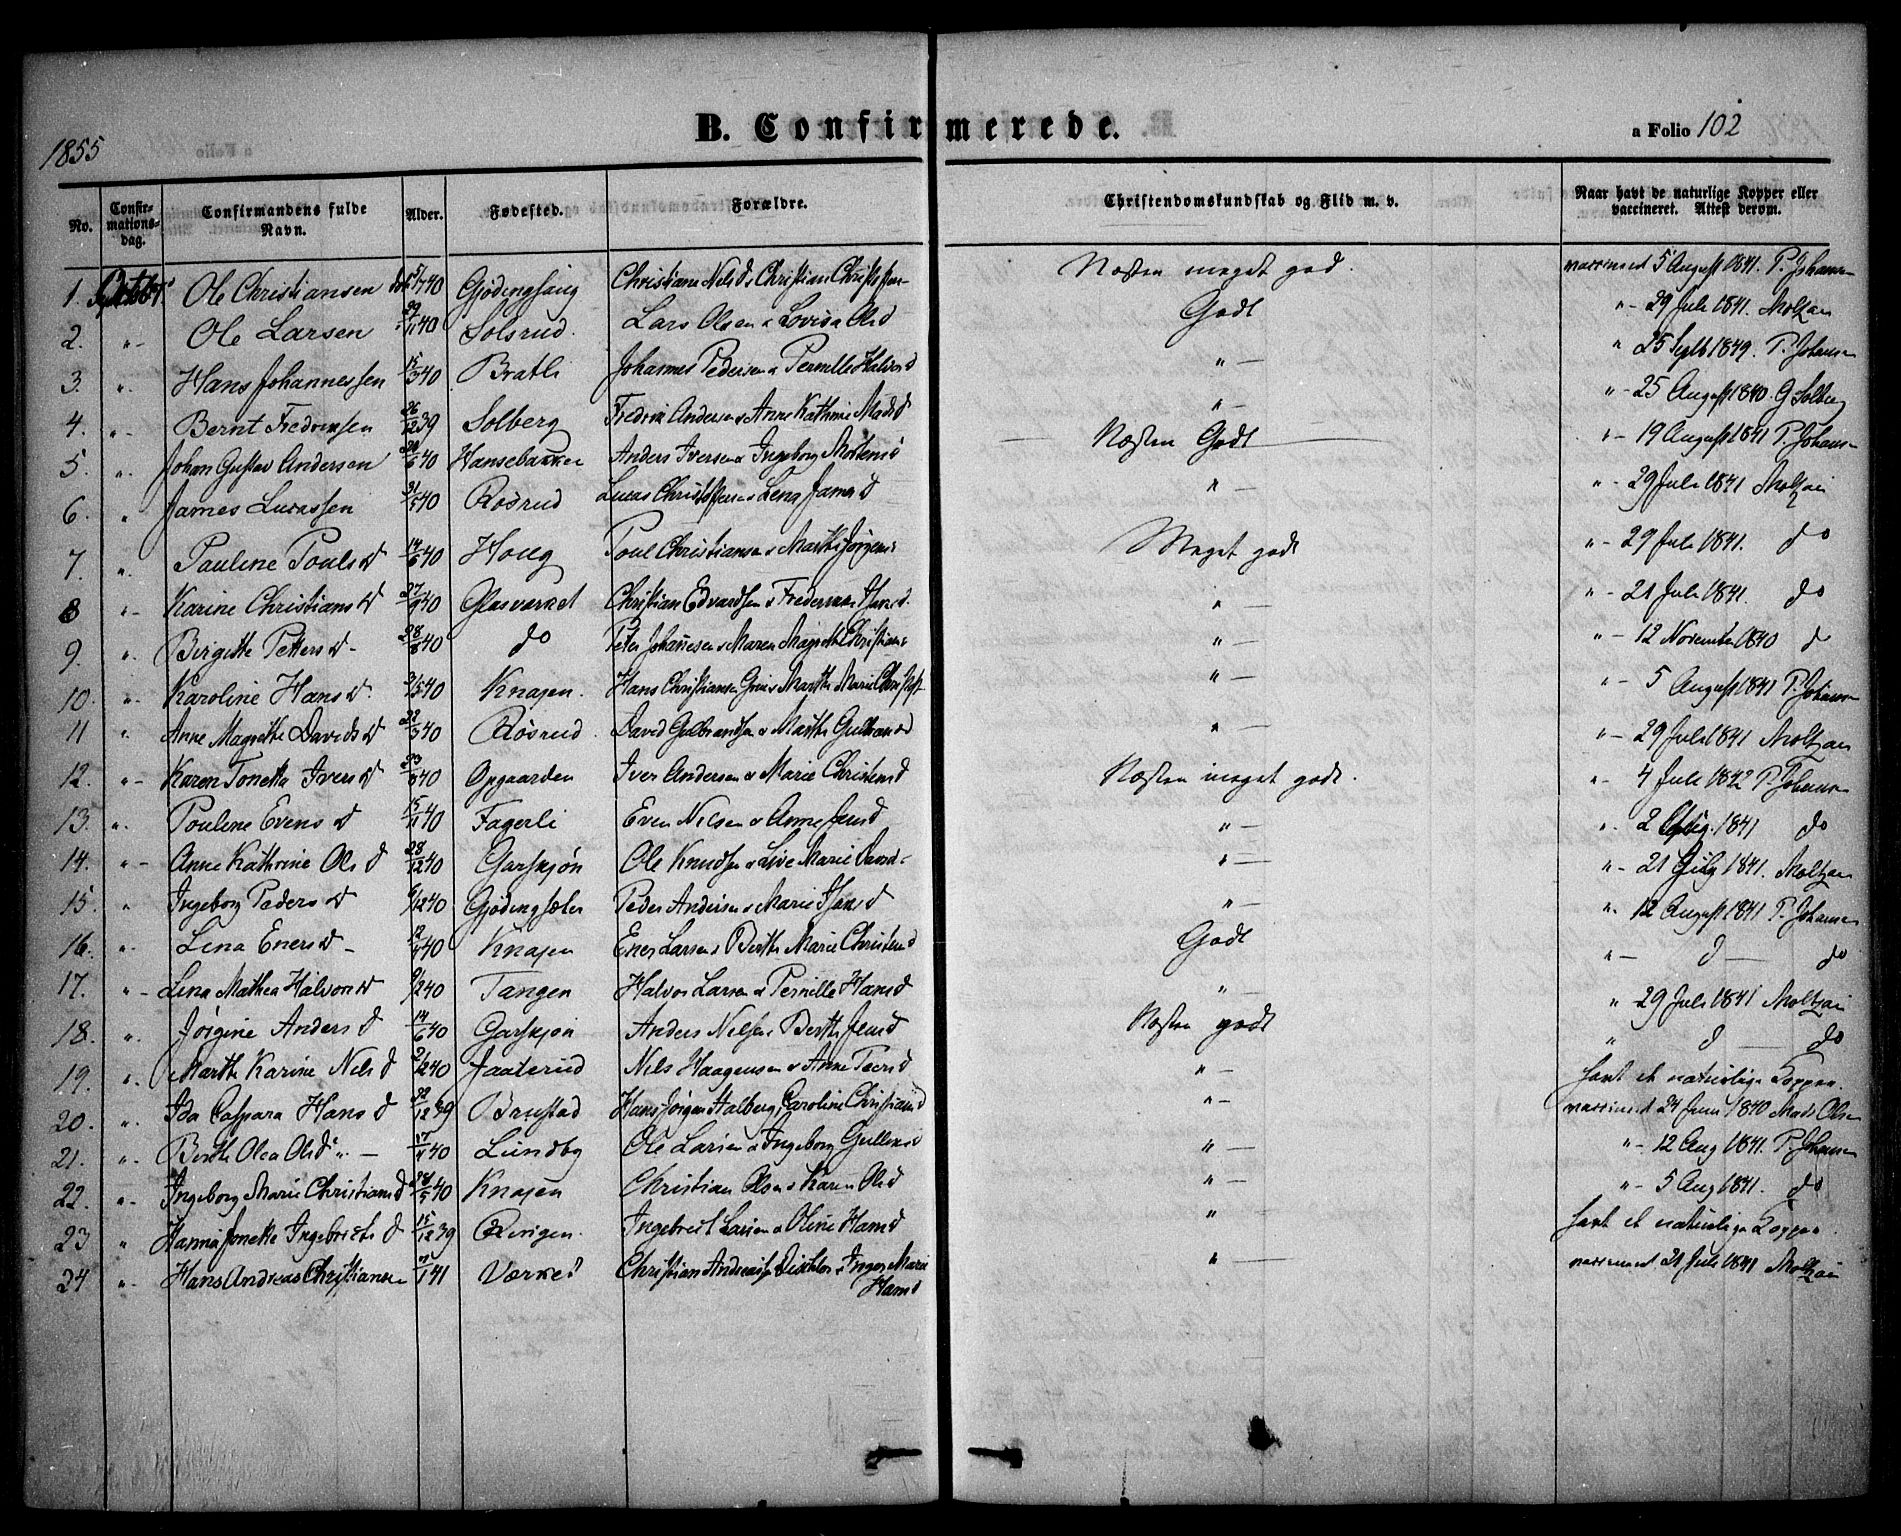 1855
B. Confirmerede.
a Folio 102
No. Confirmationsdag. Confirmandens fulde Navn. Alder. Fødested. Forældre. Christendomskundskab og Flid m. v. Naar havt de naturlige Kopper eller vaccineret. Attest derom.
1. Ole Christiansen 40 Christiane Nelsd Christian Næsten meget god. 5 August 1841. P. Johansen
2. " Ole Larsen 29/11 40 Solsrud. Lars Olsen Lovisa Olsd Godt " 29 Juli 1841. Moltzau
3. " Hans Johannessen 15/3 40 Bratli Johannes Pedersen Pernille Halvorsd " " 25 Septb 1849. P. Johansen
4. " Bernt Fredriksen 26/12 39 Solberg Fredrik Andersen Anne Kathrine Madsd " " 25 August 1840. G Solberg
5. " Johan Gustav Andersen 40 Hansebakken Anders Iversen Ingeborg Mortensd Næsten Godt " 19 August 1841 P. Johansen
6. " James Lucassen 31/5 40 Rösrud Lucas Christoffersen Lena Jamesd " " 29 Juli 1841 Moltzau
7. " Pauline Poulsd 14/6 40 Houg Poul Christiansen Marthe Jörgens Meget godt " 29 Juli 1841. do
8 " Karine Christiansd 27/9 40 Glasværket Christian Edvardsen Hansd. " " 21 Juli 1841. do
9. " Birgitte Petersd 28/8 40 do Peter Johannesen Maren Magrethe Christians " " 12 November 1840 d
10. " Karoline Hansd. 40 Knapen. Hans Christiansen Marthe Marie " " 5 August 1841 P. Johansen
11 " Anne Magrethe Davidsd 22/3 40 Rösrud. David Gulbrandsen Marthe Gulbransd " " 29 Juli 1841 Moltzau
12. " Karen Tonetta Iversd 23/3 40 Opgaarden Iver Andersen Marie Christensd Næsten meget godt. " 4 Juli 1842 P. Johansen
13. " Pouline Evensd 15/11 40 Fagerli Even Nilsen Anne Jensd " " 2 Aug. 1841 do
14. " Anne Kathrine Olsd 28/12 40 Garsjön Ole Knudsen Live Marie David " " 21 July 1841. Moltzau
15. " Ingeborg Pedersd 6/12 40 Peder Andersen Marie Hansd " " 12 August 1841 P. Johansen
16. " Lina Enersd 12/4 40 Knapen Ener Larsen Berthe Marie Christensd Godt " d do
17. " Lina Mathea Halvorsd 9/2 40 Tangen Halvor Larsen Pernille Hansd " " 29 Juli 1841 Moltzau
18. " Jörgine Andersd 14/6 40 Garsjön Anders Nilsen Berthe Jensd Næsten godt " d do
19. " Marthe Karine Nelsd 2/2 40 Jaaterud Nels Haagensen Anne Peersd " havt de naturlige Kopper.
20. " Ida Caspara Hansd 22/12 39 Brustad Hans Jörgen Halberg, Caroline Christiansd " 24 Juni 1840 Mads Olsen
21. " Berthe Olea Olsd 17/11 40 Lundby Ole Larsen Ingeborg Gullensd " " 12 Aug 1841. P. Johansen
22. " Ingeborg Marie Christiansd 28/5 40 Knapen Christian Olsen Karen Olsd " " 5 Aug 1841. do
23 " Hanna Jonette Ingebretsd 15/12 39 Ringen. Ingebret Larsen Oline Hansd " havt de naturlige Kopper
24 " Hans Andreas Christiansen 1 41 Værket Christian Andreassen Inger Marie Hansd " 21 Juli 1841 Moltzau